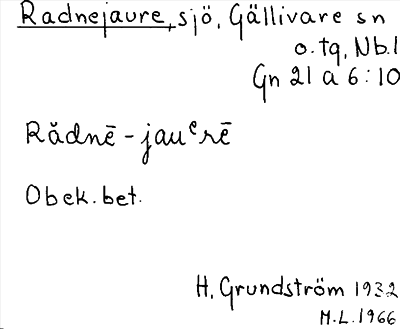 Radnejaure, sjö, Gällivare sn
o. tg, Nb.l
Gn 21 a 6:10
Rădnē - jauᵉrē
Obek. bet.
H. Grundström 1932
M.L. 1966